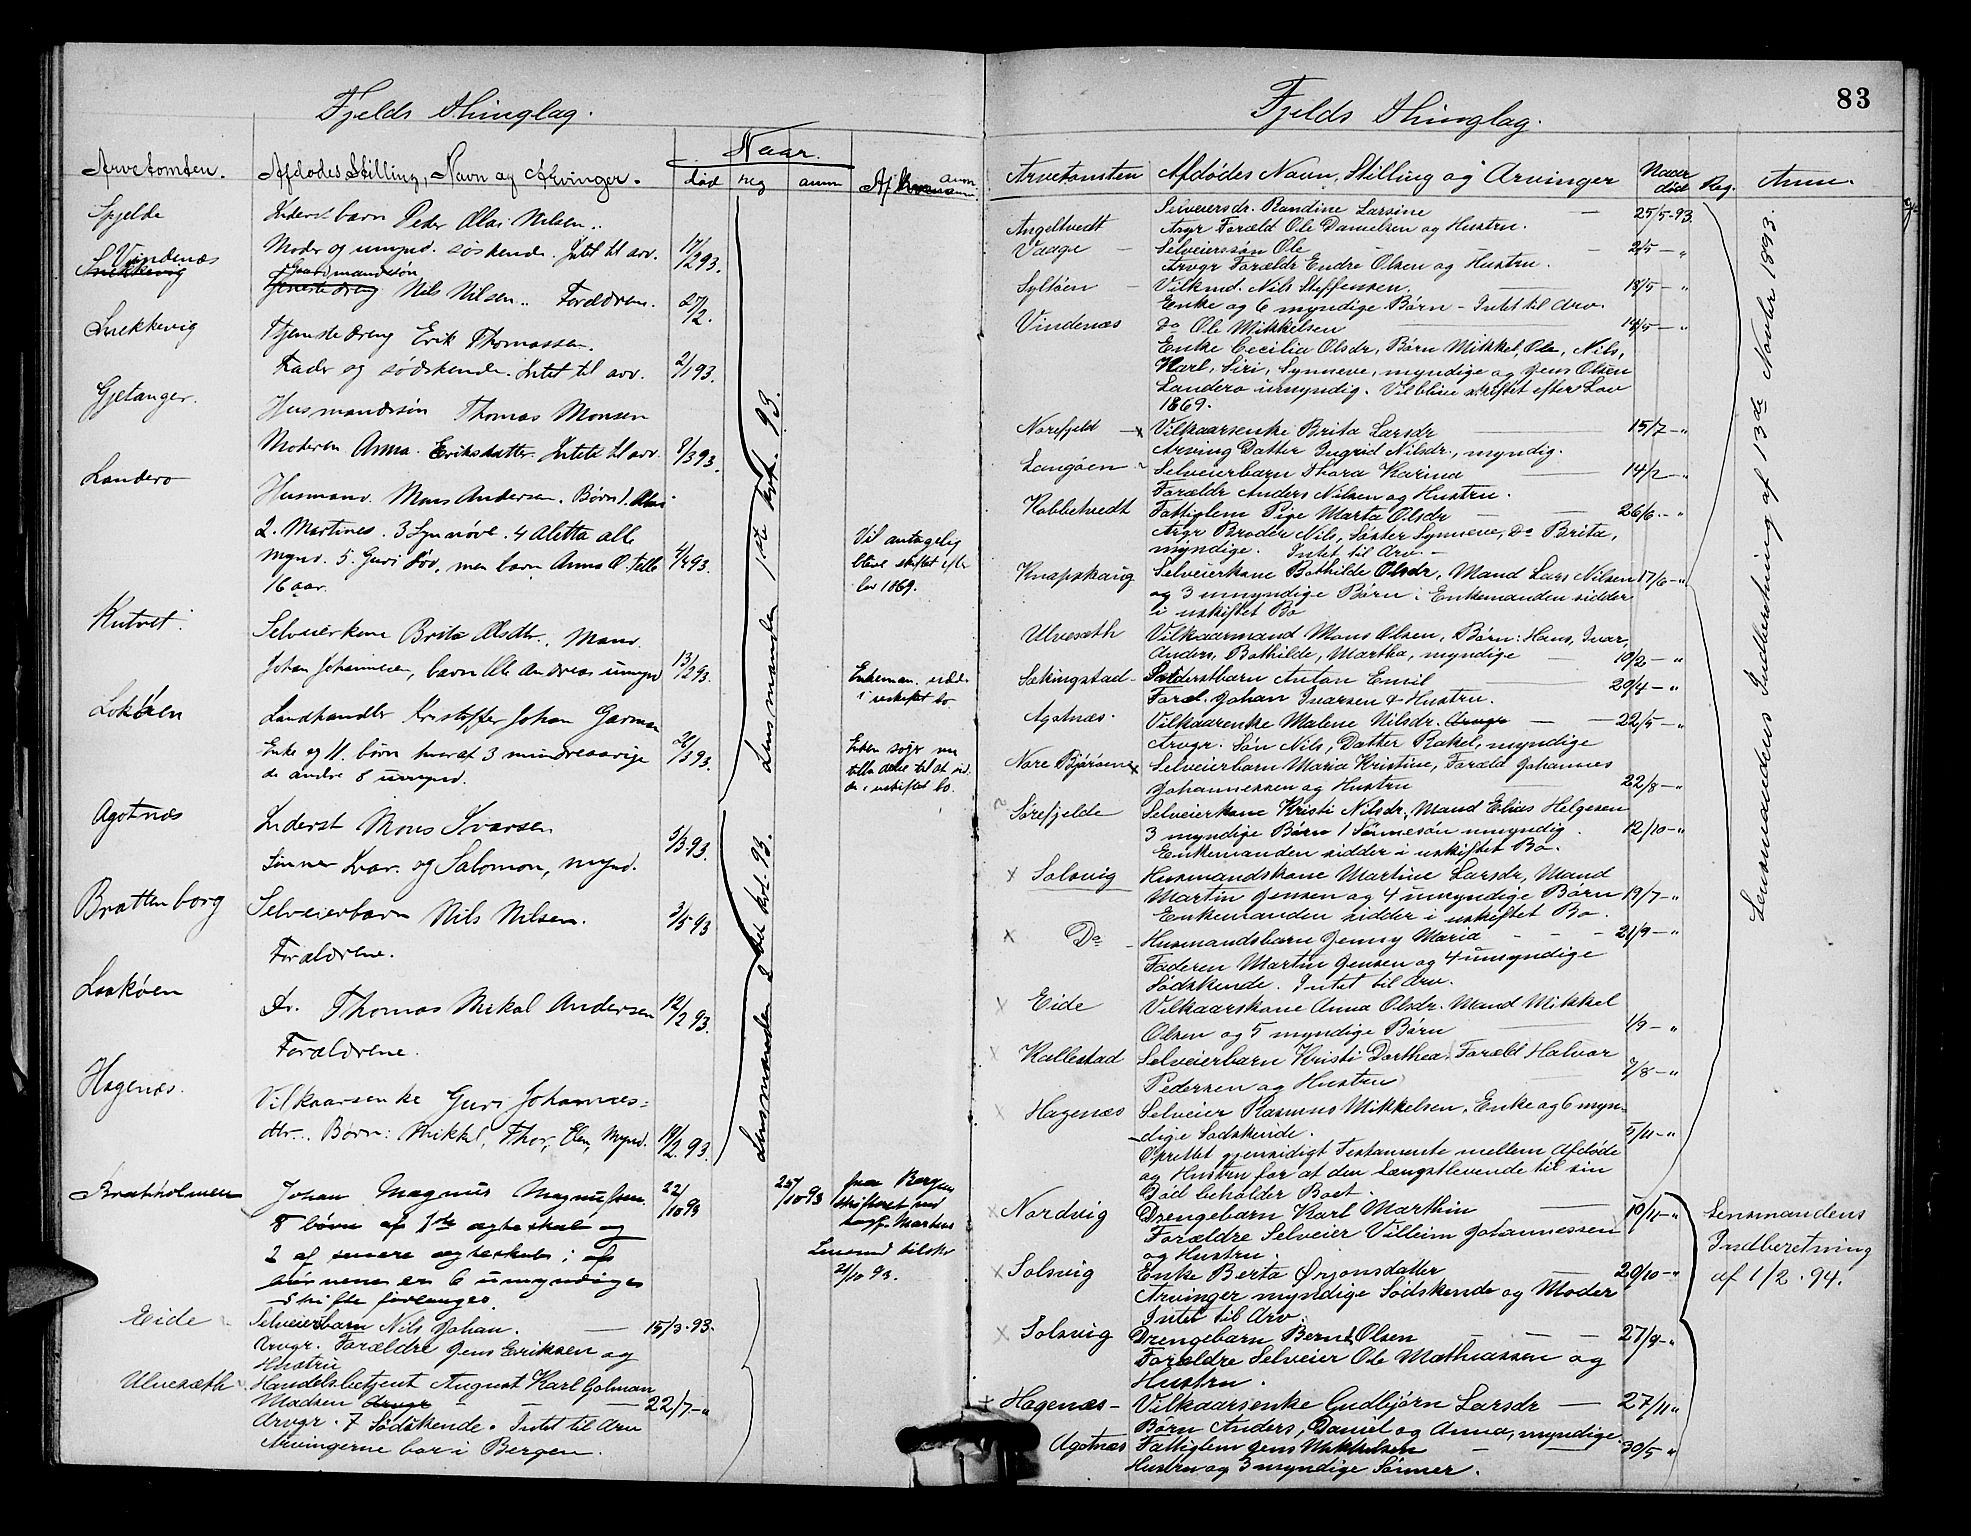 Fjelds Thinglag.
Arvetomten. Afdødes Stilling, Navn og Arvinger. Naar. død reg anm Af anm.
Spjelde Inderst barn Peder Olai Nilsen..
Moder og umynd. søskende. Intet til arv. 17/2 93.
Vindenæs Gaardmandssøn
Nils Nilsen.. Forældrene. 27/2.
Snekkevig Tjenestedreng Erik Thomassen.
Fader og sødskende. Intet til arv. 2/1 93.
Gjetanger. Husmandssøn Thomas Monsen
Moderen Anna Eriksdatter. Intet til arv. 9/3 93.
Landero Husmand. Mons Andersen. Børn 1.
2. Martines. 3 Synnøve. 4 Aletta alle
mynd. 5. Guri død, men barn Anna O. 4/4 93. Vil antagelig
16 aar. blive skiftet efter
lov 1869.
Selveierkone Brita Olsdtr., Mand
Johan Johannesen, barn Ole Andreas umynd 13/2 93. Enkeman. sidde
i uskiftet bo
Lokøien Landhandler Kristoffer Johan German
Enke og 11. børn hvoraf 3 mindreaarige 26/3 93.
de andre 8 umynd. i uskiftet bo.
Agotnæs Inderst Mons Ivarsen 5/3 93.
Sønner Ivar. og Salomon, mynd.
Brattenborg Selveierbarn Nils Nilsen. 3/5 93
Forældrene.
Laakøen Do. Thomas Mikal Andersen 12/2 93.
Forældrene.
Hagenæs. Vilkaarsenke Guri Johannes=
dtr.. Børn: Mikkel, Thor, Elen, Mynd. 19/2. 93.
Lensmanden 1ste kvt. 93.
Lensmanden 2det kvt. 93.
Bratholmen Johan Magnus Magnussen. 22/10 93 25/10 93 fra Bergens
8 børn af 1ste ægteskab og skifteret ved
2 af senere ægteskab; af Lensmd tilskr
børnene er 6 umyndiges 24/10 93.
skifte forlanges.
Eide Selveierbarn Nils Johan. — 15/3-93.
Arvgr. Forældre Jens Eriksen og
Hustru
Ulvesæth Handelsbetjent August Karl Golman
Madsen Arvgr — — 22/7-"
Arvgr. 7 Sødskende. Intet til Arv
Arvingerne bor i Bergen.
83
Fjelds Thinglag.
Arvetomten Afdødes Navn, Stilling og Arvinger Naar død Reg. Anm.
Angeltvedt Selveiersdr. Randine Larsine — 25/5-93.
Arvgr Foræld Ole Danielsen og Hustru.
Vaage — Selveierssøn Ole — 2/5 — "
Arvgr Forældr Endre Olsen og Hustru.
Syltøen — Vilkmd. Nils Steffensen. 18/5 — "
Enke og 6 myndige Børn - Intet til Arv.
Vindenæs Do Ole Mikkelsen 14/5 — "
Enke Cecilia Olsdr, Børn Mikkel, Ole, Nils,
Karl, Siri, Synneve, myndige og Jens Olsen
Landero umyndig. Vil blive skiftet efter Lov
1869.
Norefjeld — x Vilkaarsenke Brita Larsdr 15/7 — "
Arving Datter Ingrid Nilsdr., myndig.
Langøen Selveierbarn Thora Karina 14/2 — "
Forældr Anders Nilsen og Hustru.
Kobbetvedt Fattiglem Pige Marta Olsdr — — 26/6. — "
Arvgr Broder Nils, Søster Synneve, Do Brita,
myndige. Intet til Arv. —
Knapskaug Selveierkone Bothilde Olsdr, Mand Lars Nilsen 17/6 — "
og 3 umyndige Børn. Enkemanden sidder
i uskiftet Bo
Ulvesæth Vilkaarmand Mons Olsen, Børn: Hans, Ivar,
Anders, Bothilde, Martha, myndige — 10/2 — "
Sækingstad Inderstbarn Anton Emil 20/4 — "
Foræl. Johan Ivarsen & Hustru.
Agotnæs. Vilkaarenke Malene Nilsdr. Arvgr — — 22/5 — "
Arvgr. Søn Nils, Datter Rakel, myndige
Nore Bjørøen x Selveierbarn Maria Kristine, Foræld Johannes
Johannessen og Hustru 22/8 — "
Sørefjelde Selveierkone Kristi Nilsdr, Mand Elias Helgesen
3 myndige Børn 1 Sønnesøn umyndig. 12/10 — "
Enkemanden sidder i uskiftet Bo.
x Solsvig Husmandskone Martine Larsdr, Mand
Martin Jensen og 4 umyndige Børn 19/7 — "
Enkemanden sidder i uskiftet Bo.
x Do — Husmandsbarn Jenny Maria — — — 21/9 — "
Faderen Martin Jensen og 4 umyndige
Sødskende. Intet til Arv.
x Eide Vilkaarskone Anna Olsdr. Mand Mikkel
Olsen og 5 myndige Børn 1/9 — "
x Kallestad Selveierbarn Kristi Dorthea. Foræld Halvor
Pedersen og Hustru 7/8 — "
x Hagenæs Selveier Rasmus Mikkelsen. Enke og 6 myn-
dige Sødskende. 5/11 — "
Oprettet gjensidigt Testamente mellem Afdøde
og Hustru for at den Længstlevende til sin
Død beholder Boet.
Lensmandens Indberetning af 13de Novbr 1893.
x Nordvig Drengebarn Karl Marthin 10/11 — " Lensmandens
Forældre Selveier Villeim Johannessen Indberetning
og Hustru. af 1/2. 94.
x Solsvig Enke Berta Ørjansdatter 20/10 — "
Arvinger myndige Sødskende og Moder
Intet til Arv.
x Solsvig Drengebarn Bernt Olsen — — 27/9 — "
Forældre Selveier Ole Mathiassen og
Hustru.
+ Hagenæs — Vilkaarsenke Gudbjørn Larsdr — 27/11 "
Børn Anders, Daniel og Anna, myndige.
Agotnæs Fattiglem Jens Mikkelsen — — 30/5 — "
Hustru og 3 myndige Sønner.